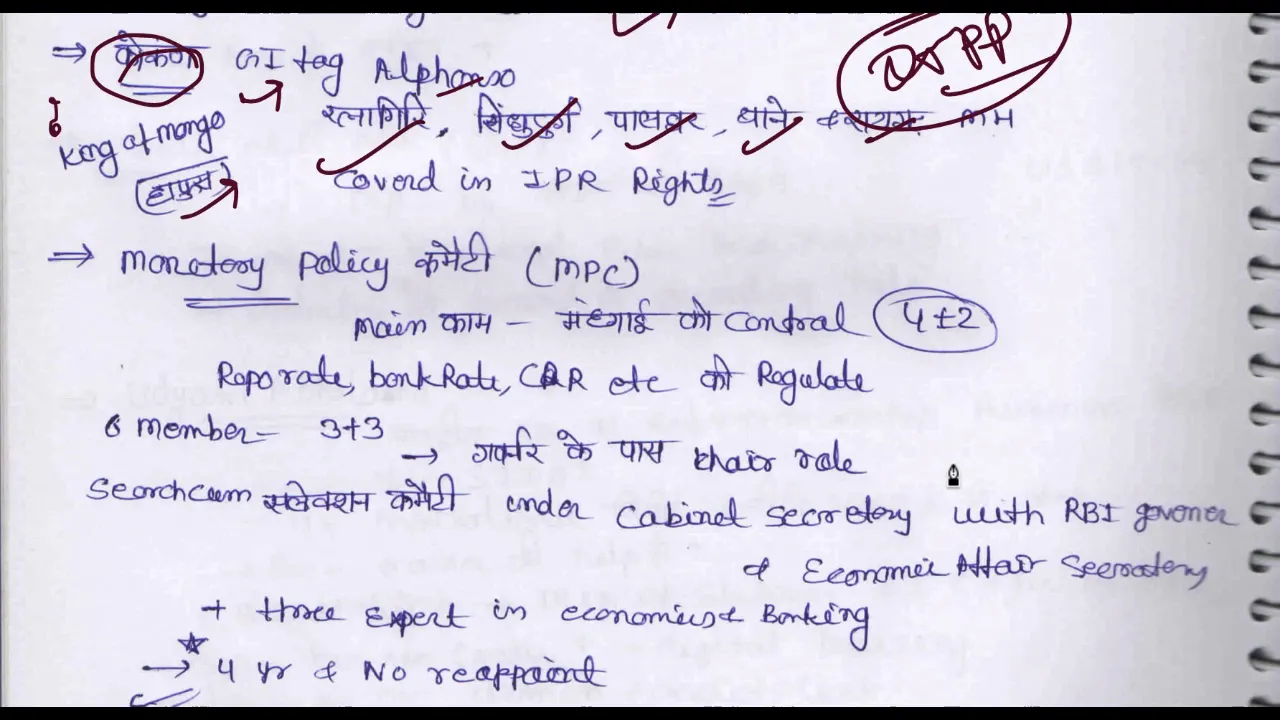 ⇒ कोंकण GI tag Alphonso
DIPP
King of mango
रत्नागिरि, सिंधुदुर्ग, पालघर, थाने & रायगढ़
हापुस
Coverd in IPR Rights
⇒ Monetory policy कमैटी (MPC)
main काम – मंहगाई को Control 4±2
Repo rate, bank Rate, CRR etc को Regulate
6 member – 3+3
→ गवर्नर के पास chair role
Searchcum सलेक्शन कमैटी under Cabinet secretory with RBI govener
& Economic Affair Secratory
+ three Expert in economics & Banking
→ 4 yr & No reappoint